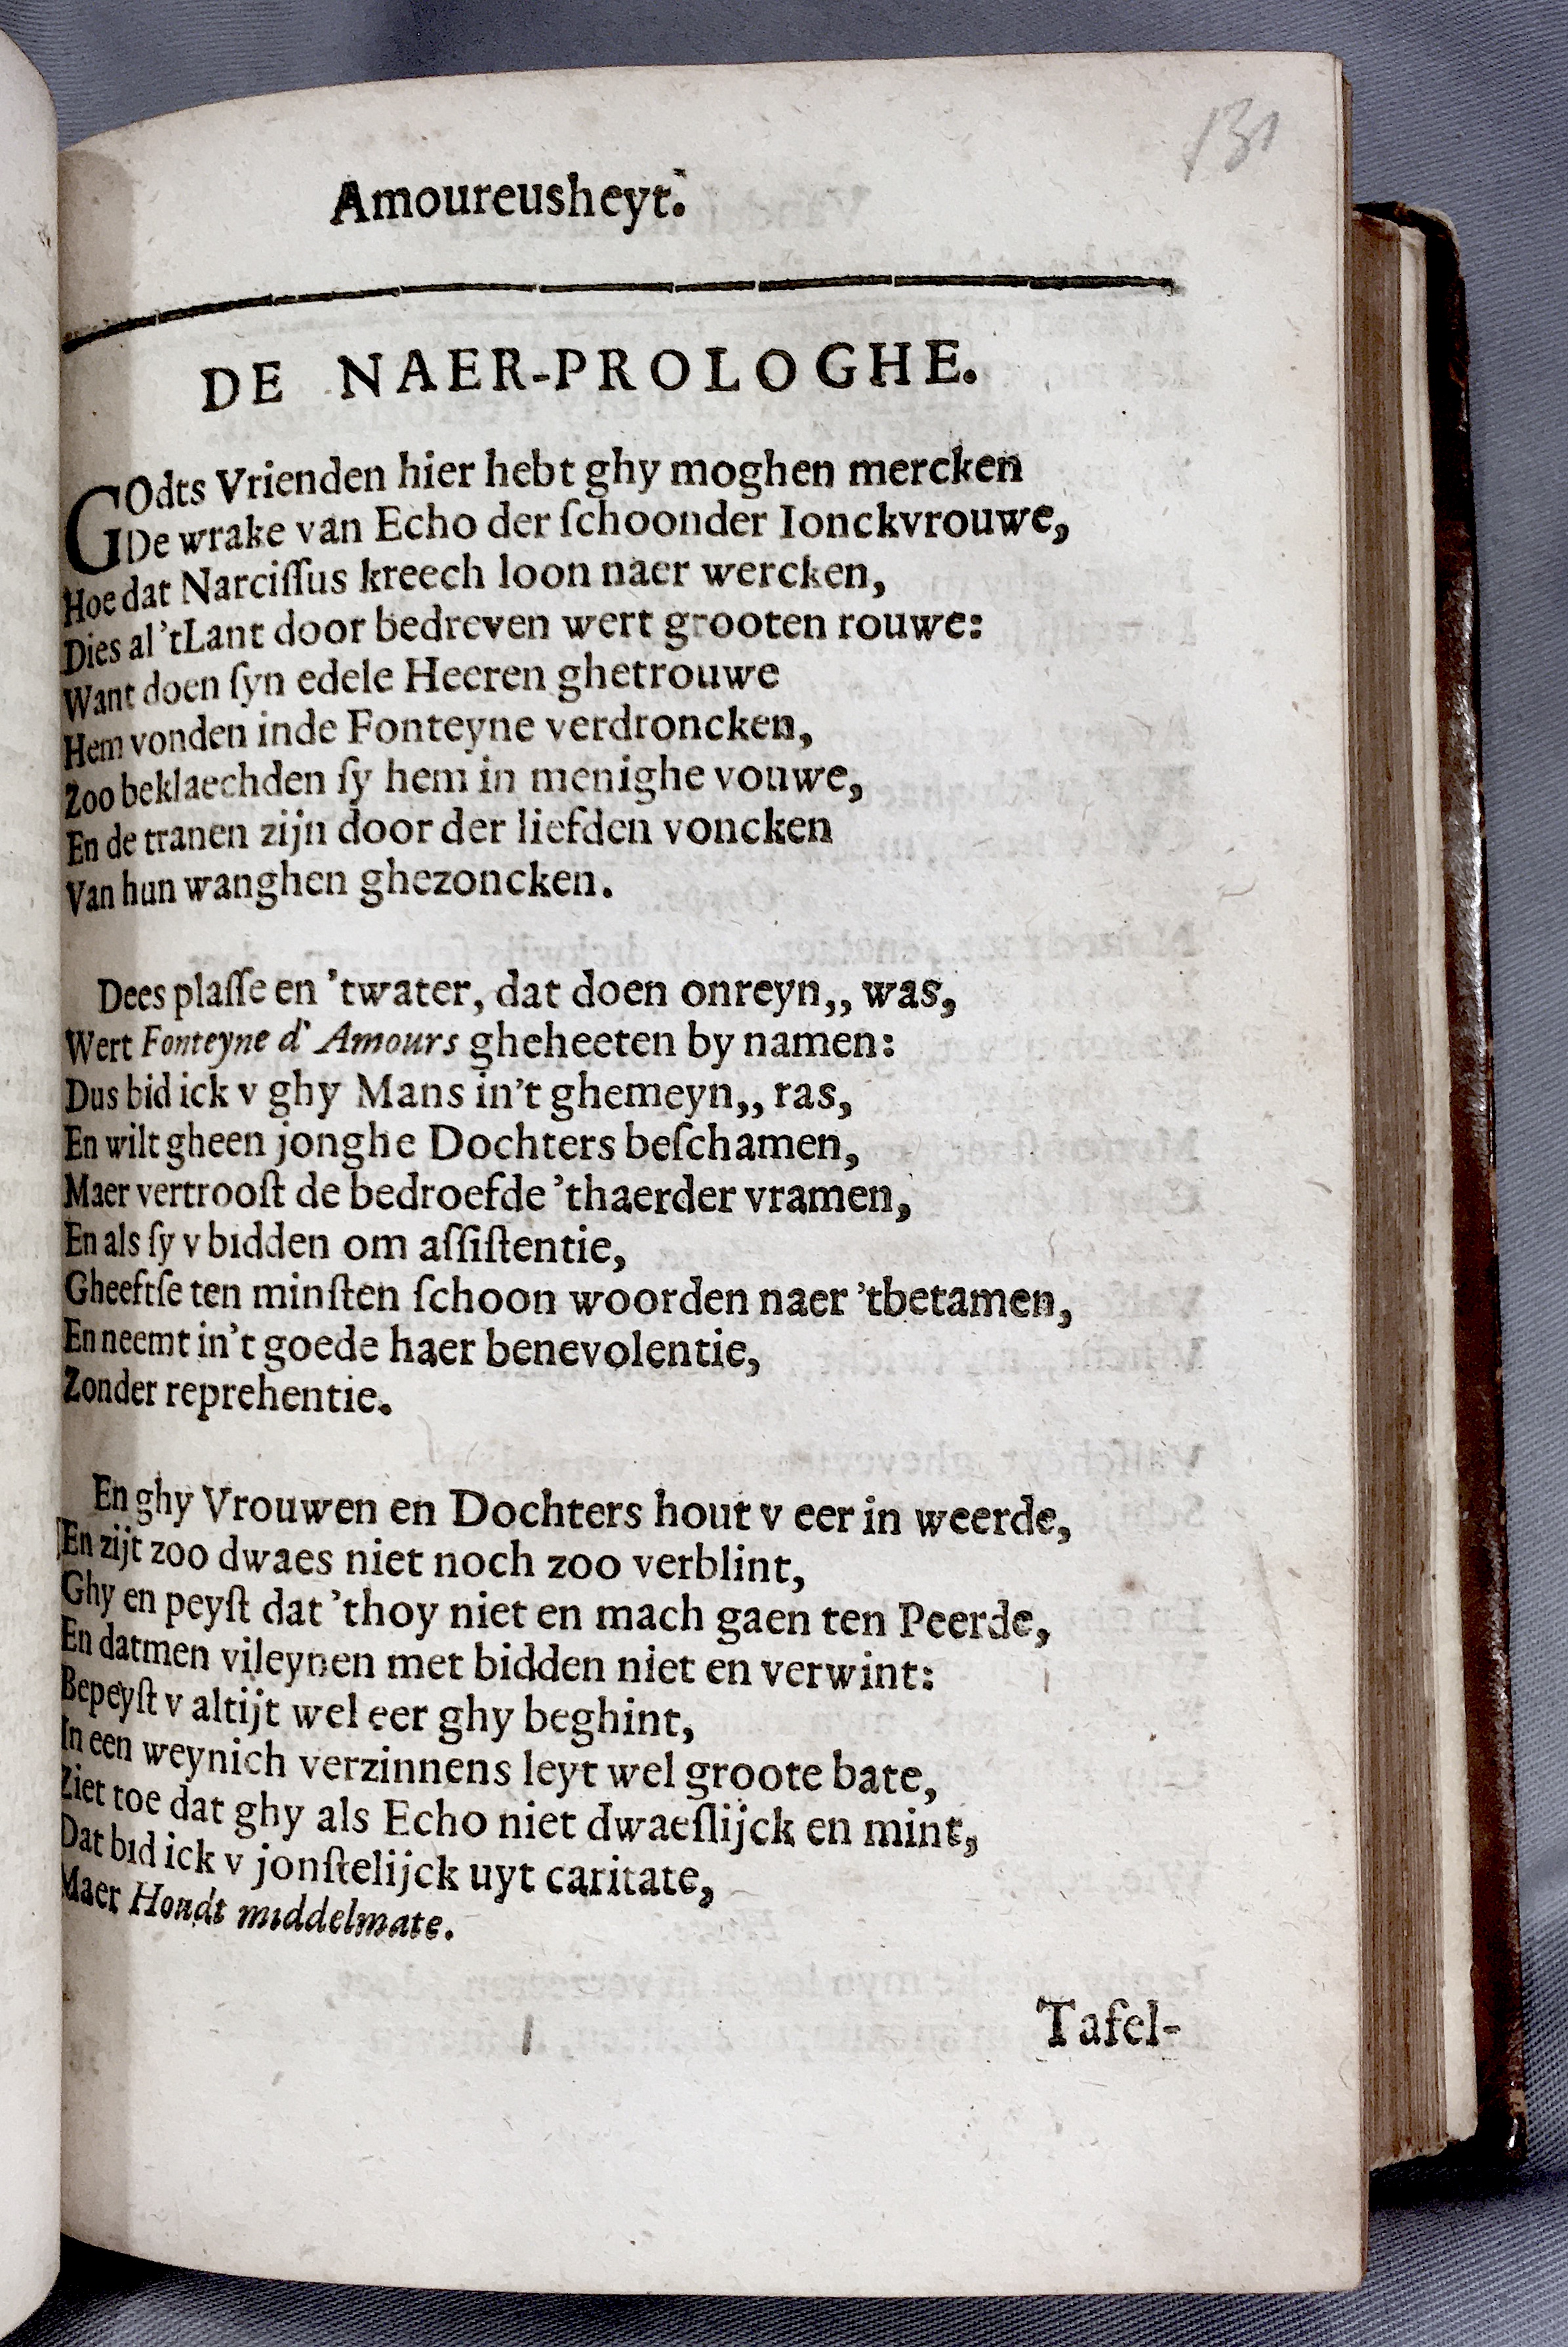 131
Amoureusheyt.
DE NAER-PROLOGHE.
GOdts Vrienden hier hebt ghy moghen mercken
De wrake van Echo der ſchoonder Ionckvrouwe,
Hoe dat Narciſſus kreech loon naer wercken,
Dies al 'tLant door bedreven wert grooten rouwe:
Want doen ſyn edele Heeren ghetrouwe
Hem vonden inde Fonteyne verdroncken,
Zoo beklaechden ſy hem in menighe vouwe,
En de tranen zijn door der liefden voncken
Van hun wanghen ghezoncken.
Dees plaſſe en 'twater, dat doen onreyn,, was,
Wert Fonteyne d' Amours gheheeten by namen:
Dus bid ick v ghy Mans in't ghemeyn,, ras,
En wilt gheen jonghe Dochters beſchamen,
Maer vertrooſt de bedroefde 'thaerder vramen,
En als ſy v bidden om aſſiſtentie,
Gheeftſe ten minſten ſchoon woorden naer 'tbetamen,
En neemt in't goede haer benevolentie,
Zonder reprehentie.
En ghy Vrouwen en Dochters hout v eer in weerde,
En zijt zoo dwaes niet noch zoo verblint,
Ghy en peyſt dat 'thoy niet en mach gaen ten Peerde,
En datmen vileynen met bidden niet en verwint:
Bepeyſt v altijt wel eer ghy beghint,
In een weynich verzinnens leyt wel groote bate,
Ziet toe dat ghy als Echo niet dwaeſlijck en mint,
Dat bid ick v jonſtelijck uyt caritate,
Maer Houdt middelmate.
Tafel-